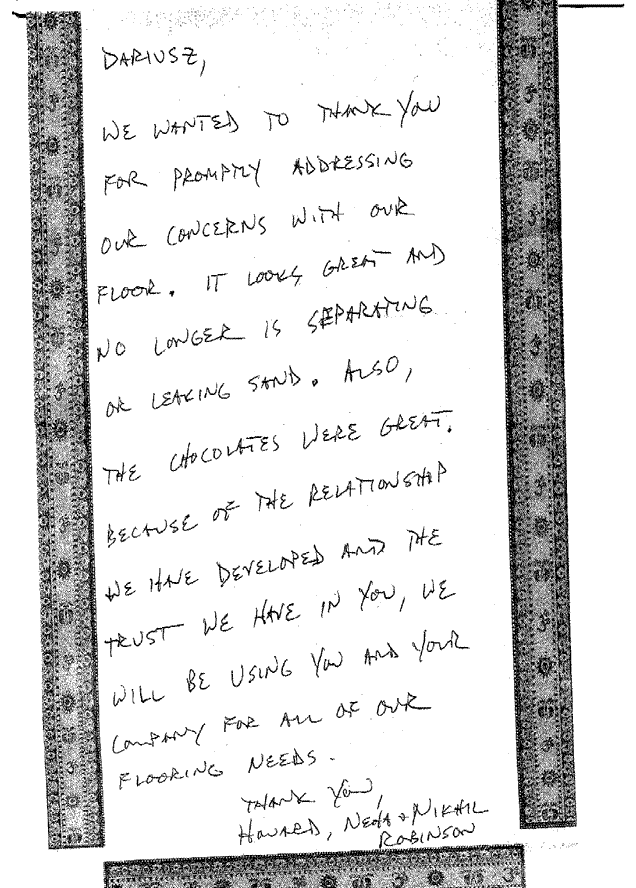 DARIUSZ,
WE WANTED TO THANK YOU
FOR PROMPTLY ADDRESSING
OUR CONCERNS WITH OUR
FLOOR. IT LOOKS GREAT AND
NO LONGER IS SEPARATING
OR LEAKING SAND. ALSO,
THE CHOCOLATES WERE GREAT.
BECAUSE OF THE RELATIONSHIP
WE HAVE DEVELOPED AND THE
TRUST WE HAVE IN YOU, WE
WILL BE USING YOU AND YOUR
COMPANY FOR ALL OF OUR
FLOORING NEEDS.
THANK YOU,
HOWARD, NEHA & NIKHIL
ROBINSON